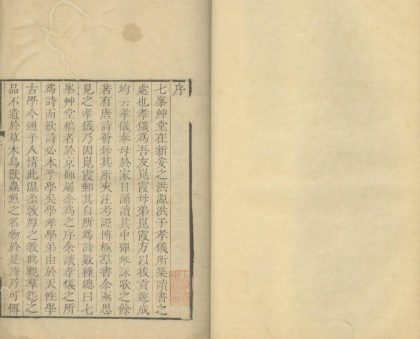 序
七峯艸堂在新安之洪源洪子孝儀所築讀書之
處也孝儀爲吾友崑霞母弟崑霞方以拔貢遊成
均云孝儀奉母於家日誦讀其中彈琴詠歌之餘
著有唐詩箋鈔其所夾注考證博極羣書余亟思
見之孝儀乃因崑霞郵其自所爲詩數種總曰七
峯艸堂稿者於京師屬余爲之序余讀孝儀之所
爲詩而歎詩必本乎學矣學孝弟由於天性學
古學今通乎人情此溫柔敦厚之教興觀羣怨之
品不遺於草木鳥獸蟲魚之名物於是詩乃可傳